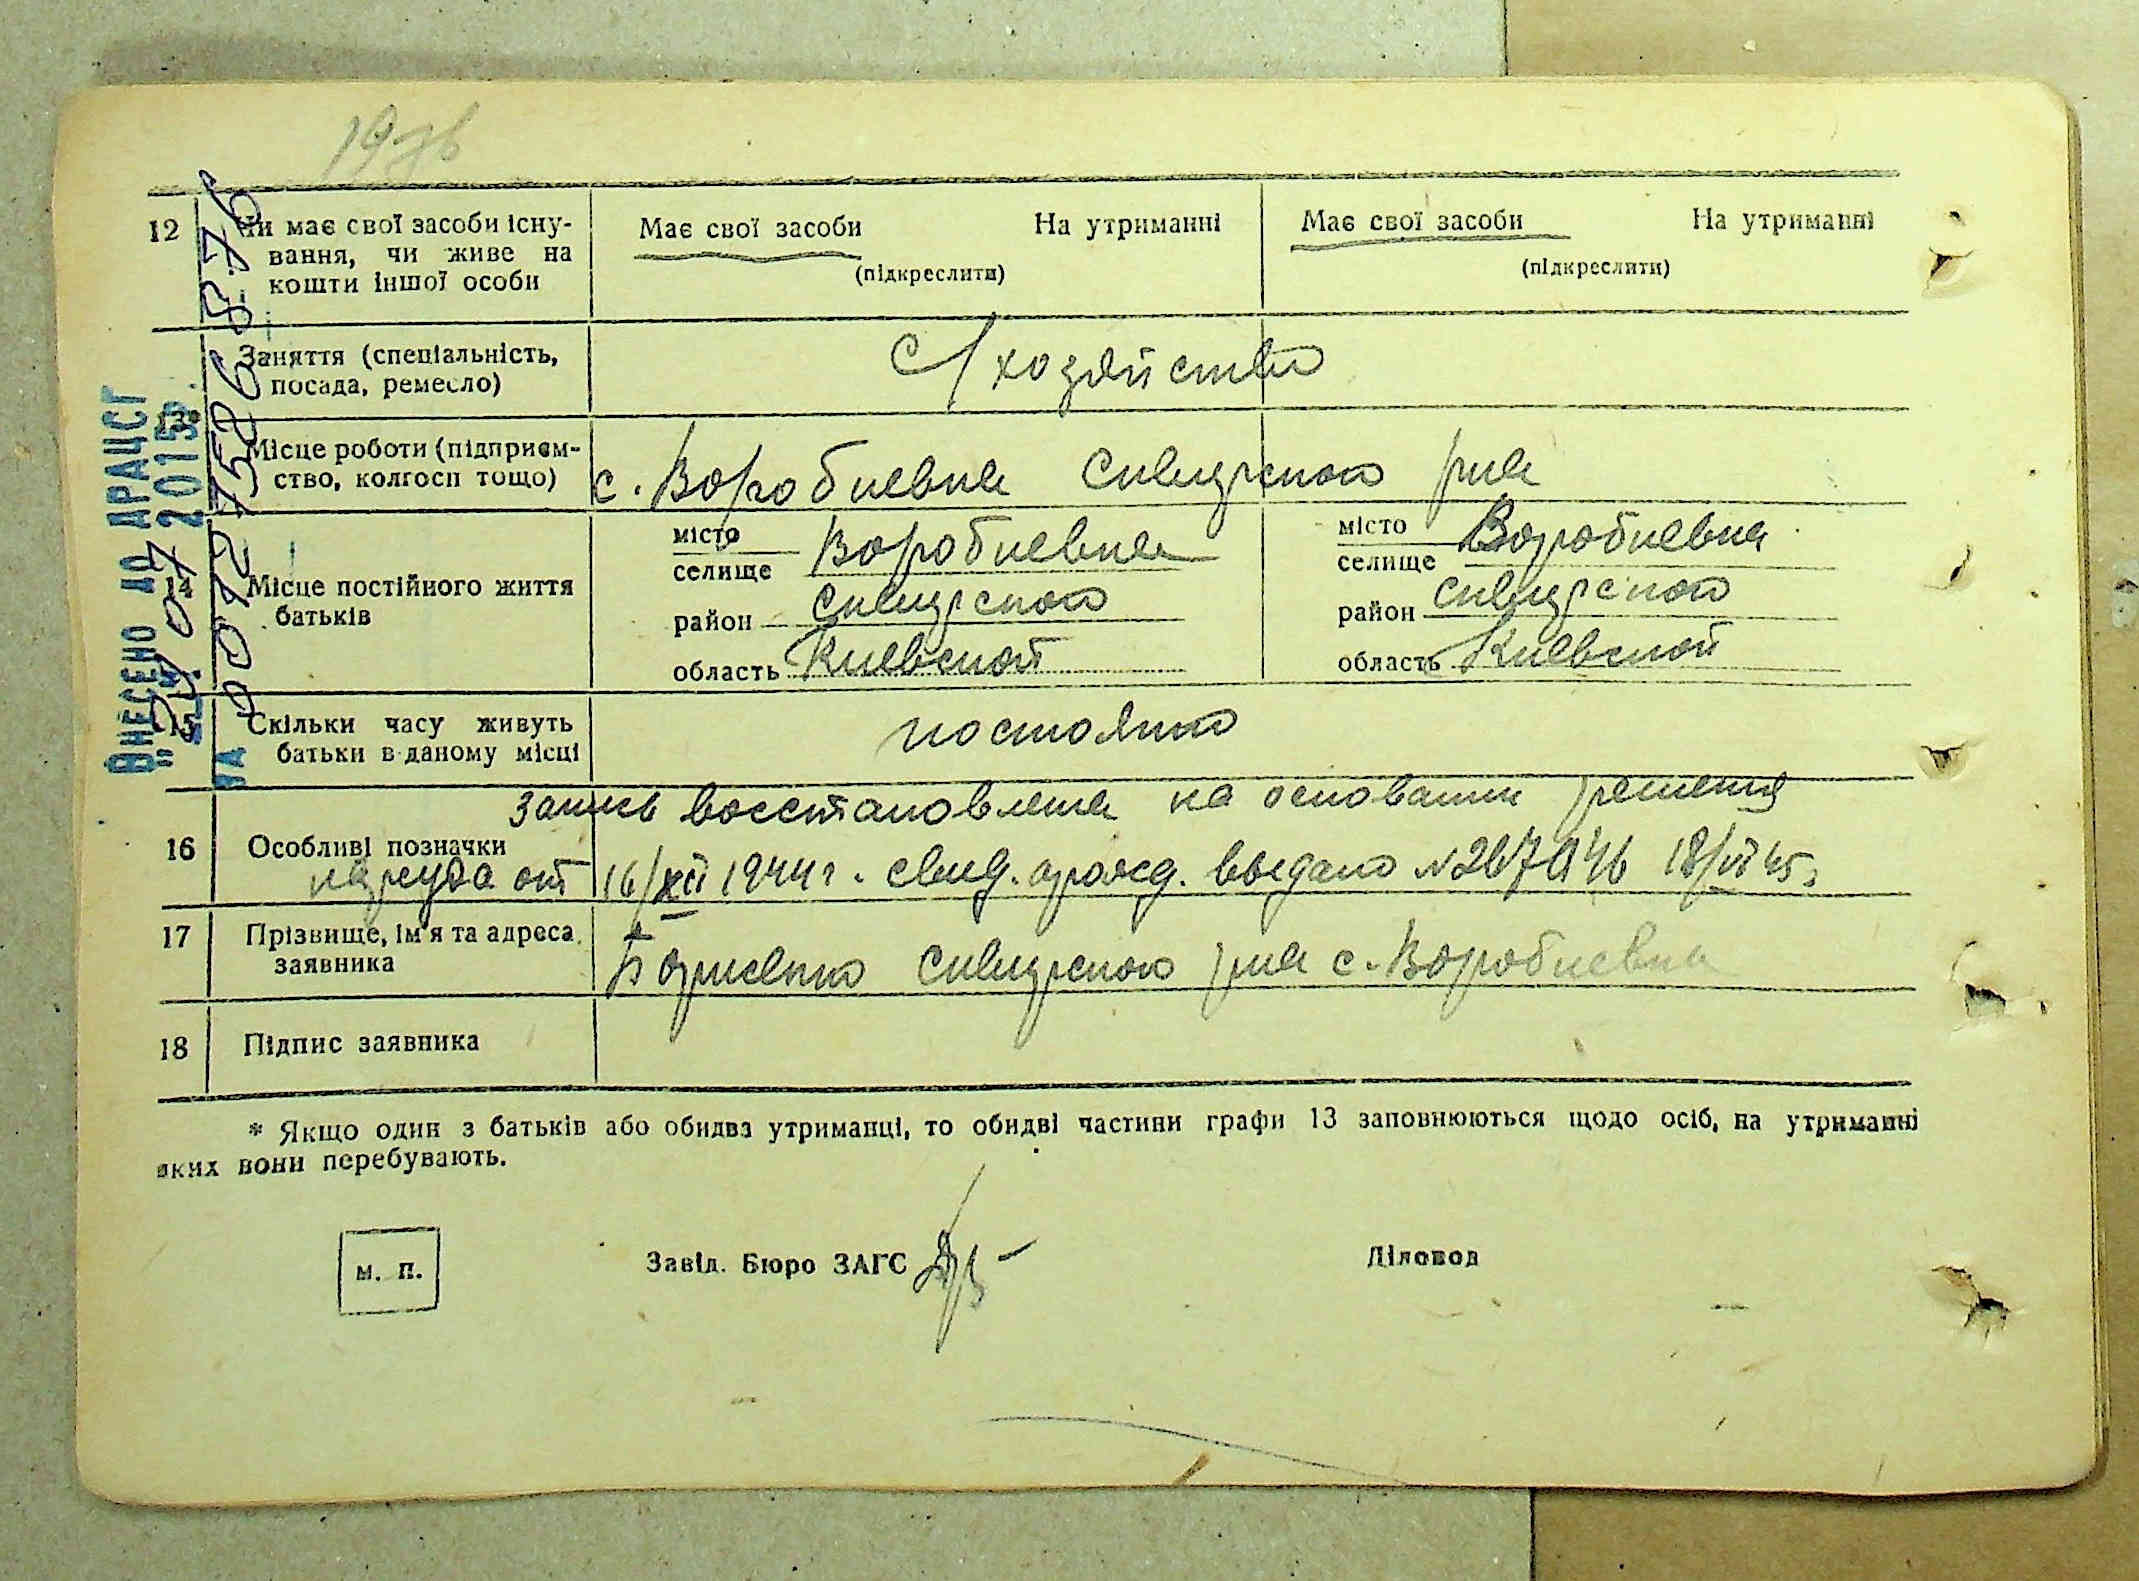 19зв
12 Чи має свої засоби існу- Має свої засоби На утриманні Має свої засоби На утриманні
вання, чи живе на (підкреслити) (підкреслити)
кошти іншої особи
Заняття (спеціальність, с/хозяйство
посада, ремесло)
13*
Місце роботи (підприєм- с. Воробиевка Сквирского р-на
ство, колгосп тощо)
14 Місце постійного життя
батьків
місто Воробиевка місто Воробиевка
селище селище
район Сквирского район Сквирского
область Киевской область Киевской
15 Скільки часу живуть постоянно
батьки в даному місці
запись восстановлена на основании решения
16 Особливі позначки
нарсуда от 16/XII 1944 г. свид. о рожд. выдано 18/VI 45 г.
17 Прізвище, ім'я та адреса Сквирского р-на с. Воробиевка
заявника
18 Підпис заявника
* Якщо один з батьків або обидва утриманці, то обидві частини графи 13 заповнюються щодо осіб, на утриманні
яких вони перебувають.
м. п. Завід. Бюро ЗАГС Діловод
Внесено до ДРАЦСГ
"24" 07 2015р.